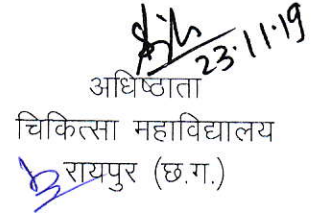 23.11.19
अधिष्ठाता
चिकित्सा महाविद्यालय
रायपुर (छ.ग.)